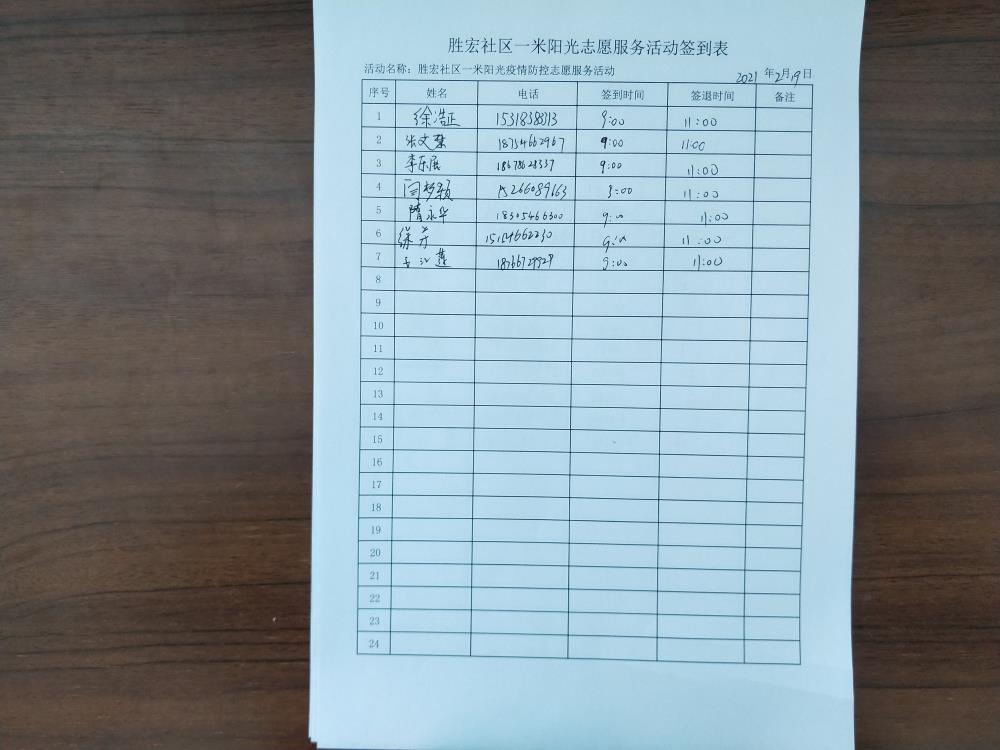 胜宏社区一米阳光志愿服务活动签到表
活动名称：胜宏社区一米阳光疫情防控志愿服务活动 2021 年2月19日
序号 姓名 电话 签到时间 签退时间 备注
1 徐浩正 9:00 11:00
2 张文 18754662967 9:00 11:00
3 李乐展 18678628337 9:00 11:00
4 闫梦颖 15266089663 9:00 11:00
5 隋永华 18305466600 9:00 11:00
6 徐芳 15154662230 9:00 11:00
7 18766729929 9:00 11:00
8
9
10
11
12
13
14
15
16
17
18
19
20
21
22
23
24